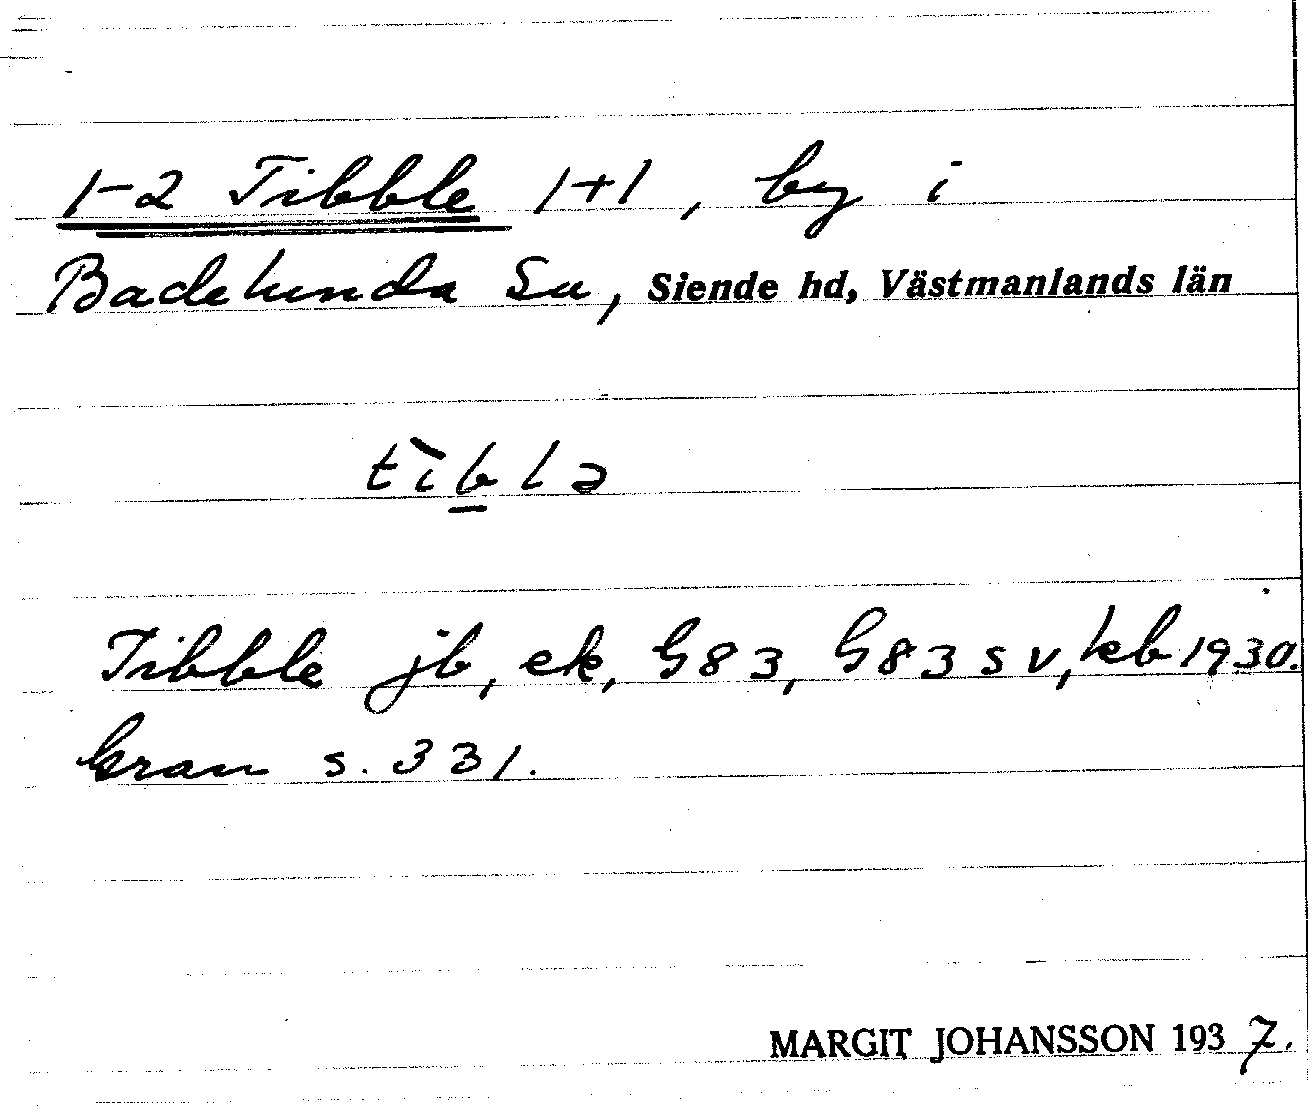 1-2 Tibble 1+1, by i
Badelunda Sn, Siende hd, Västmanlands län
tìb̲lə
Tibble jb, ek, G83, G83 sv, kb 1930.
Gran s. 331.
MARGIT JOHANSSON 1937.